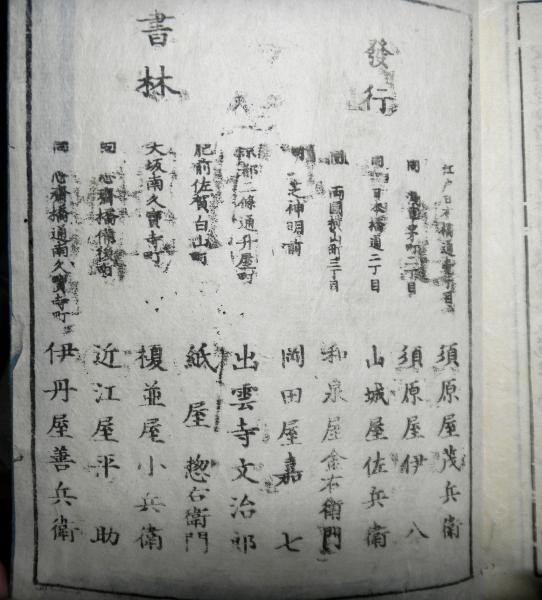 發行
書林
江戸日本橋通壹丁目 須原屋茂兵衛
同 淺草茅町二丁目 須原屋伊八
同 日本橋通二丁目 山城屋佐兵衛
同 両國横山町三丁目 和泉屋金右衛門
同 芝神明前 岡田屋嘉七
京都二條通升屋町 出雲寺文治郎
肥前佐賀白山町 紙屋惣右衛門
大坂南久寶寺町 榎並屋小兵衛
同 心齋橋備後町 近江屋平助
同 心齋橋通南久寶寺町 伊丹屋善兵衛